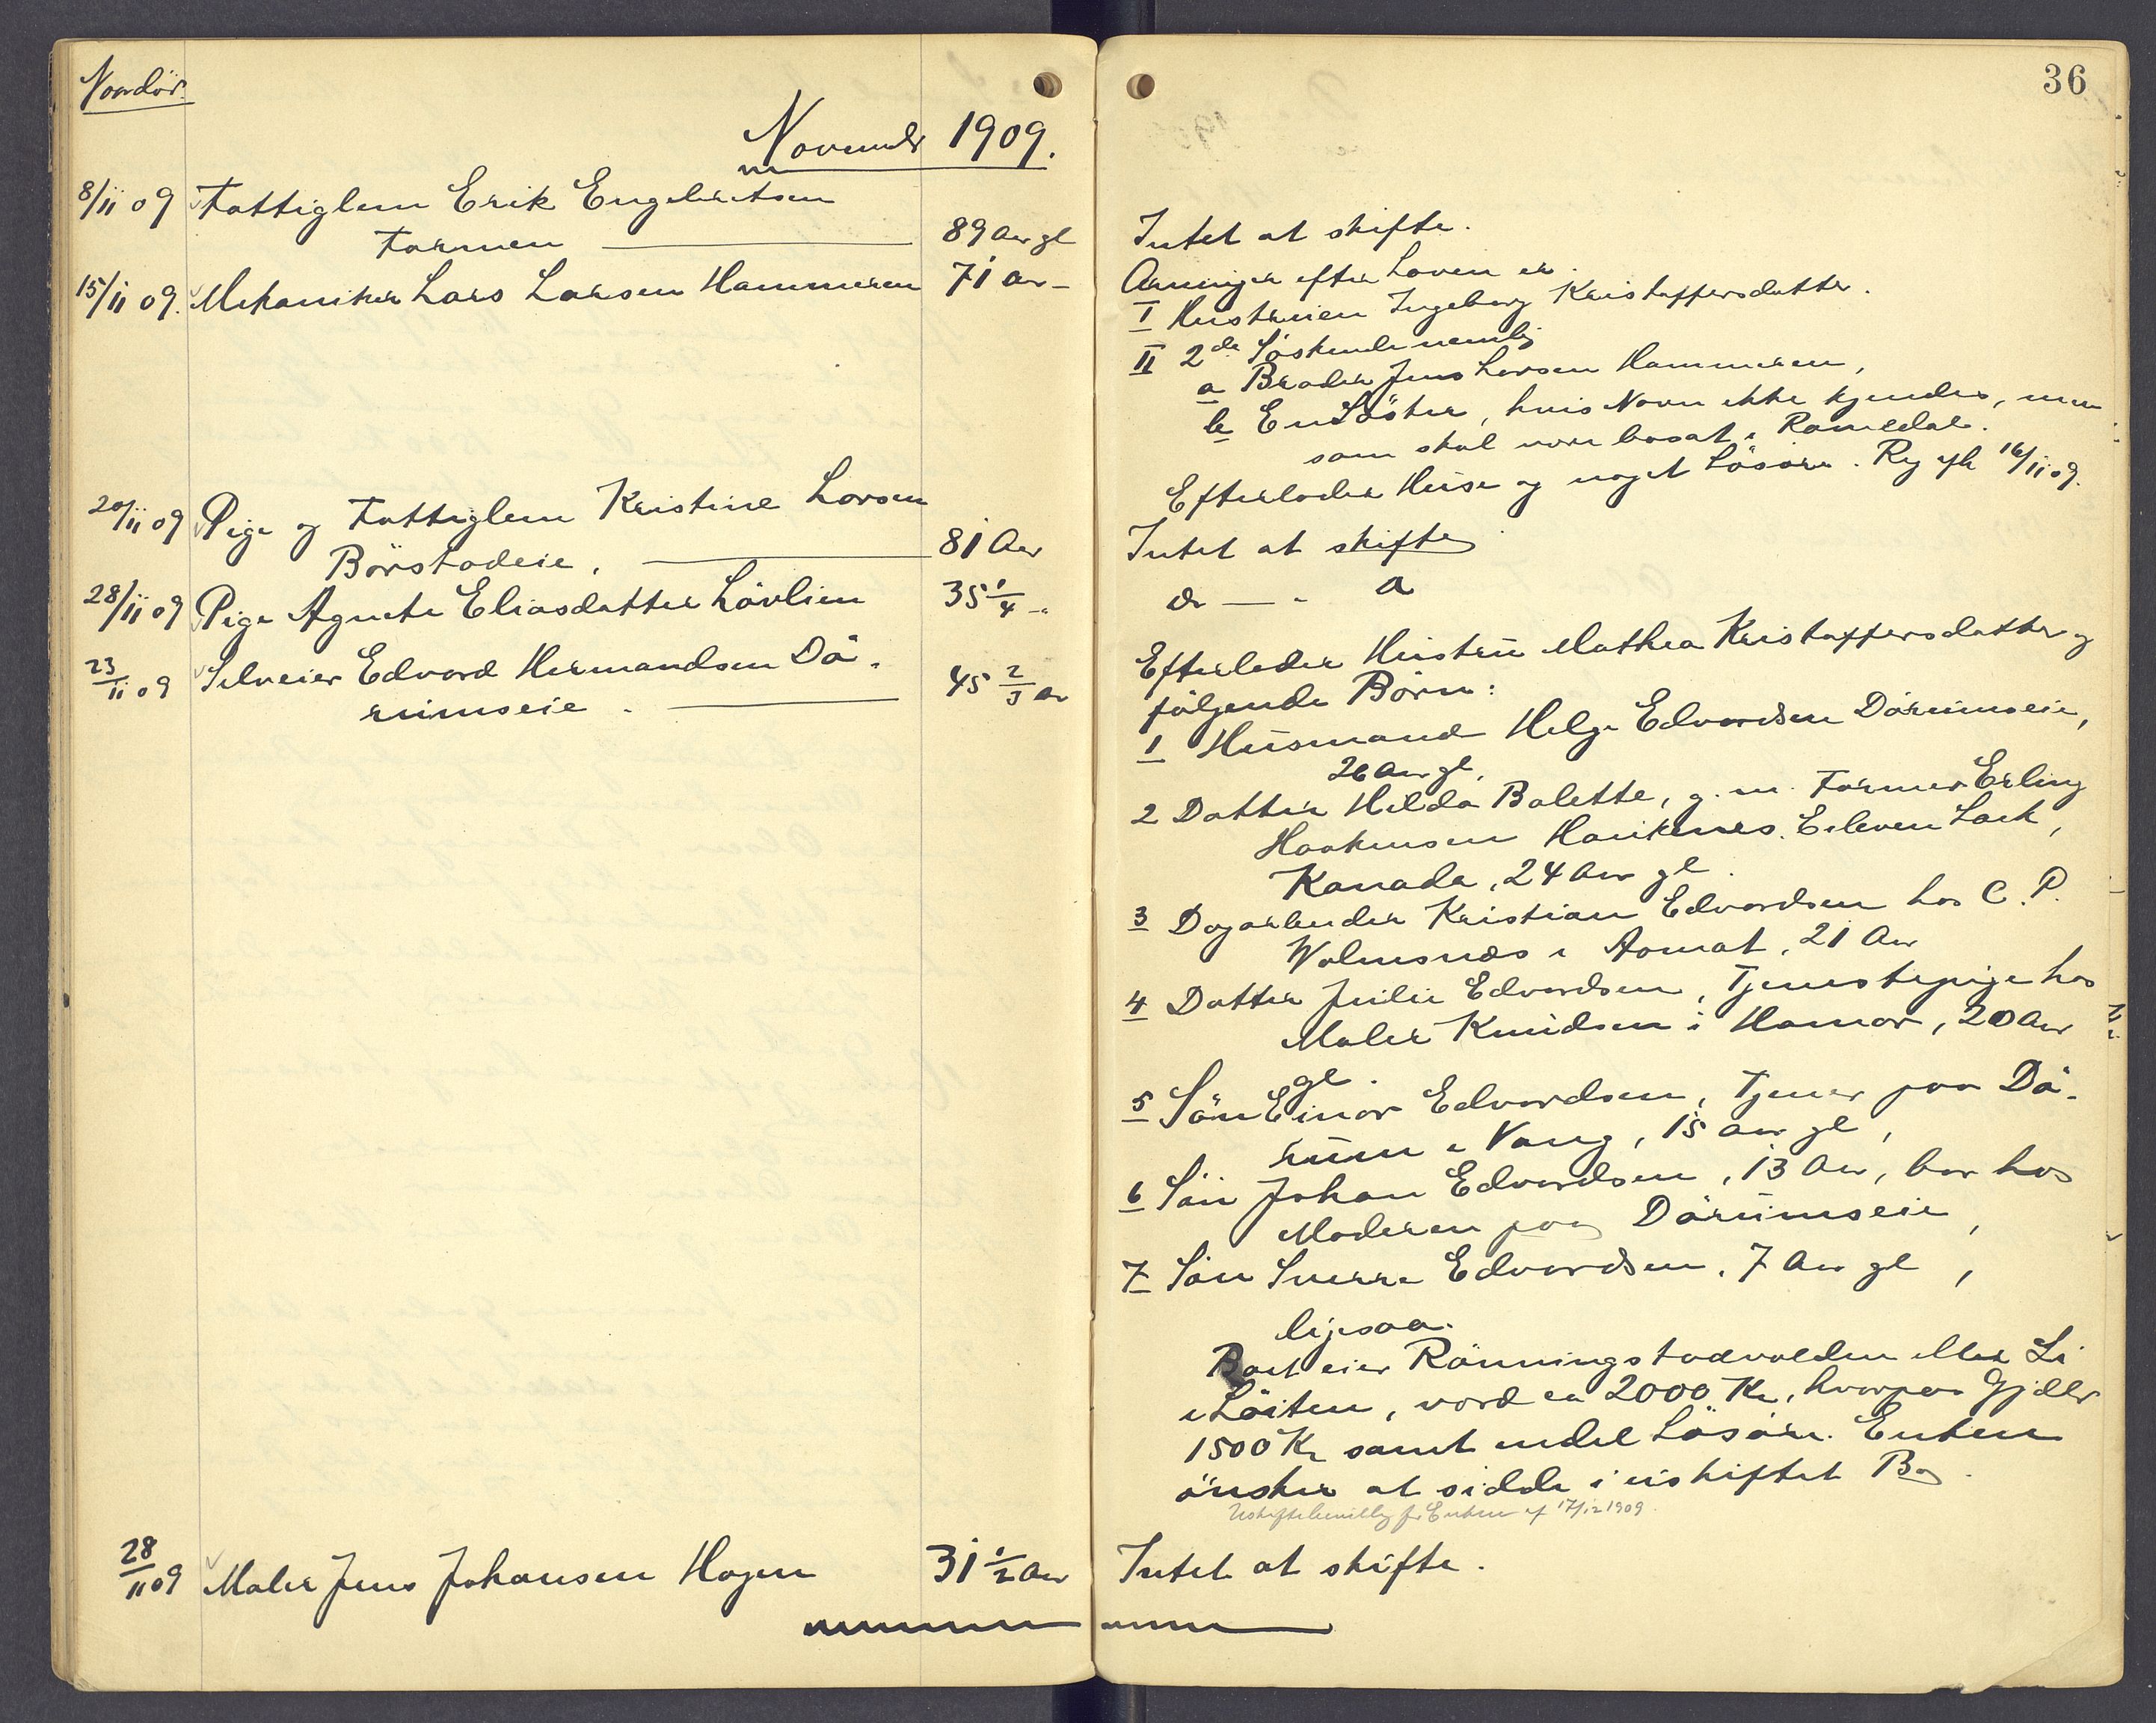 Naardöd.
November 1909.
8/11 09 Fattiglem Erik Engebretsen
Farmen 89 Aar gl
15/11 09. Mekaniker Lars Larsen Hammeren 71 Aar -
20/11 09 Pige og Fattiglem Kristine Larsen
Börstadeie. 81 Aar
28/11 09 Pige Agnete Eliasdatter Lövlien 35 1/4 -"
23/11 09 Selveier Edvard Hermandsen Dö-
rumseie. 45 2/3 Aar
28/11 09 Maler Jens Johansen Hagen 31 1/2 Aar
36
Intet at skifte.
Arvinger efter Loven er.
I Hustruen Ingeborg Kristoffersdatter.
II 2de Söskende nemlig
a Broder Jens Larsen Hammeren,
b En Söster, hvis Navn ikke kjendes, men
som skal være bosat i Romedal.
Efterlader Huse og noget Lösöre. Reg efter 16/11 09.
Intet at skifte
do — " — o
Efterlader Hustru Mathea Kristoffersdatter og
fölgende Börn:
1 Husmand Helge Edvardsen Dörumseie,
26 Aar gl,
2 Datter Hilda Balette, g. m. Farmer Erling
Haakensen Haukenes. Eleven Lack,
Kanada, 24 Aar gl.
3 Dagarbeider Kristian Edvardsen hos C. P.
Wolmsnæs i Aamot, 21 Aar
4 Datter Julie Edvardsen, Tjenestepige hos
Maler Knudsen i Hamar, 20 Aar
gl.
5 Sön Einar Edvardsen, Tjener paa Dö-
rum i Vang, 15 Aar gl,
6 Sön Johan Edvardsen, 13 Aar, bor hos
Moderen paa Dörumseie,
7 Sön Sverre Edvardsen, 7 Aar gl,
ligesaa.
Boet eier Rönningstadvolden eller Li
i Löiten, værd ca 2000 Kr, hvorpaa Gjæld
1500 Kr samt endel Lösöre. Enken
önsker at sidde i uskiftet Bo.
Uskiftebevilling for Enken af 17/12 1909.
Intet at skifte.